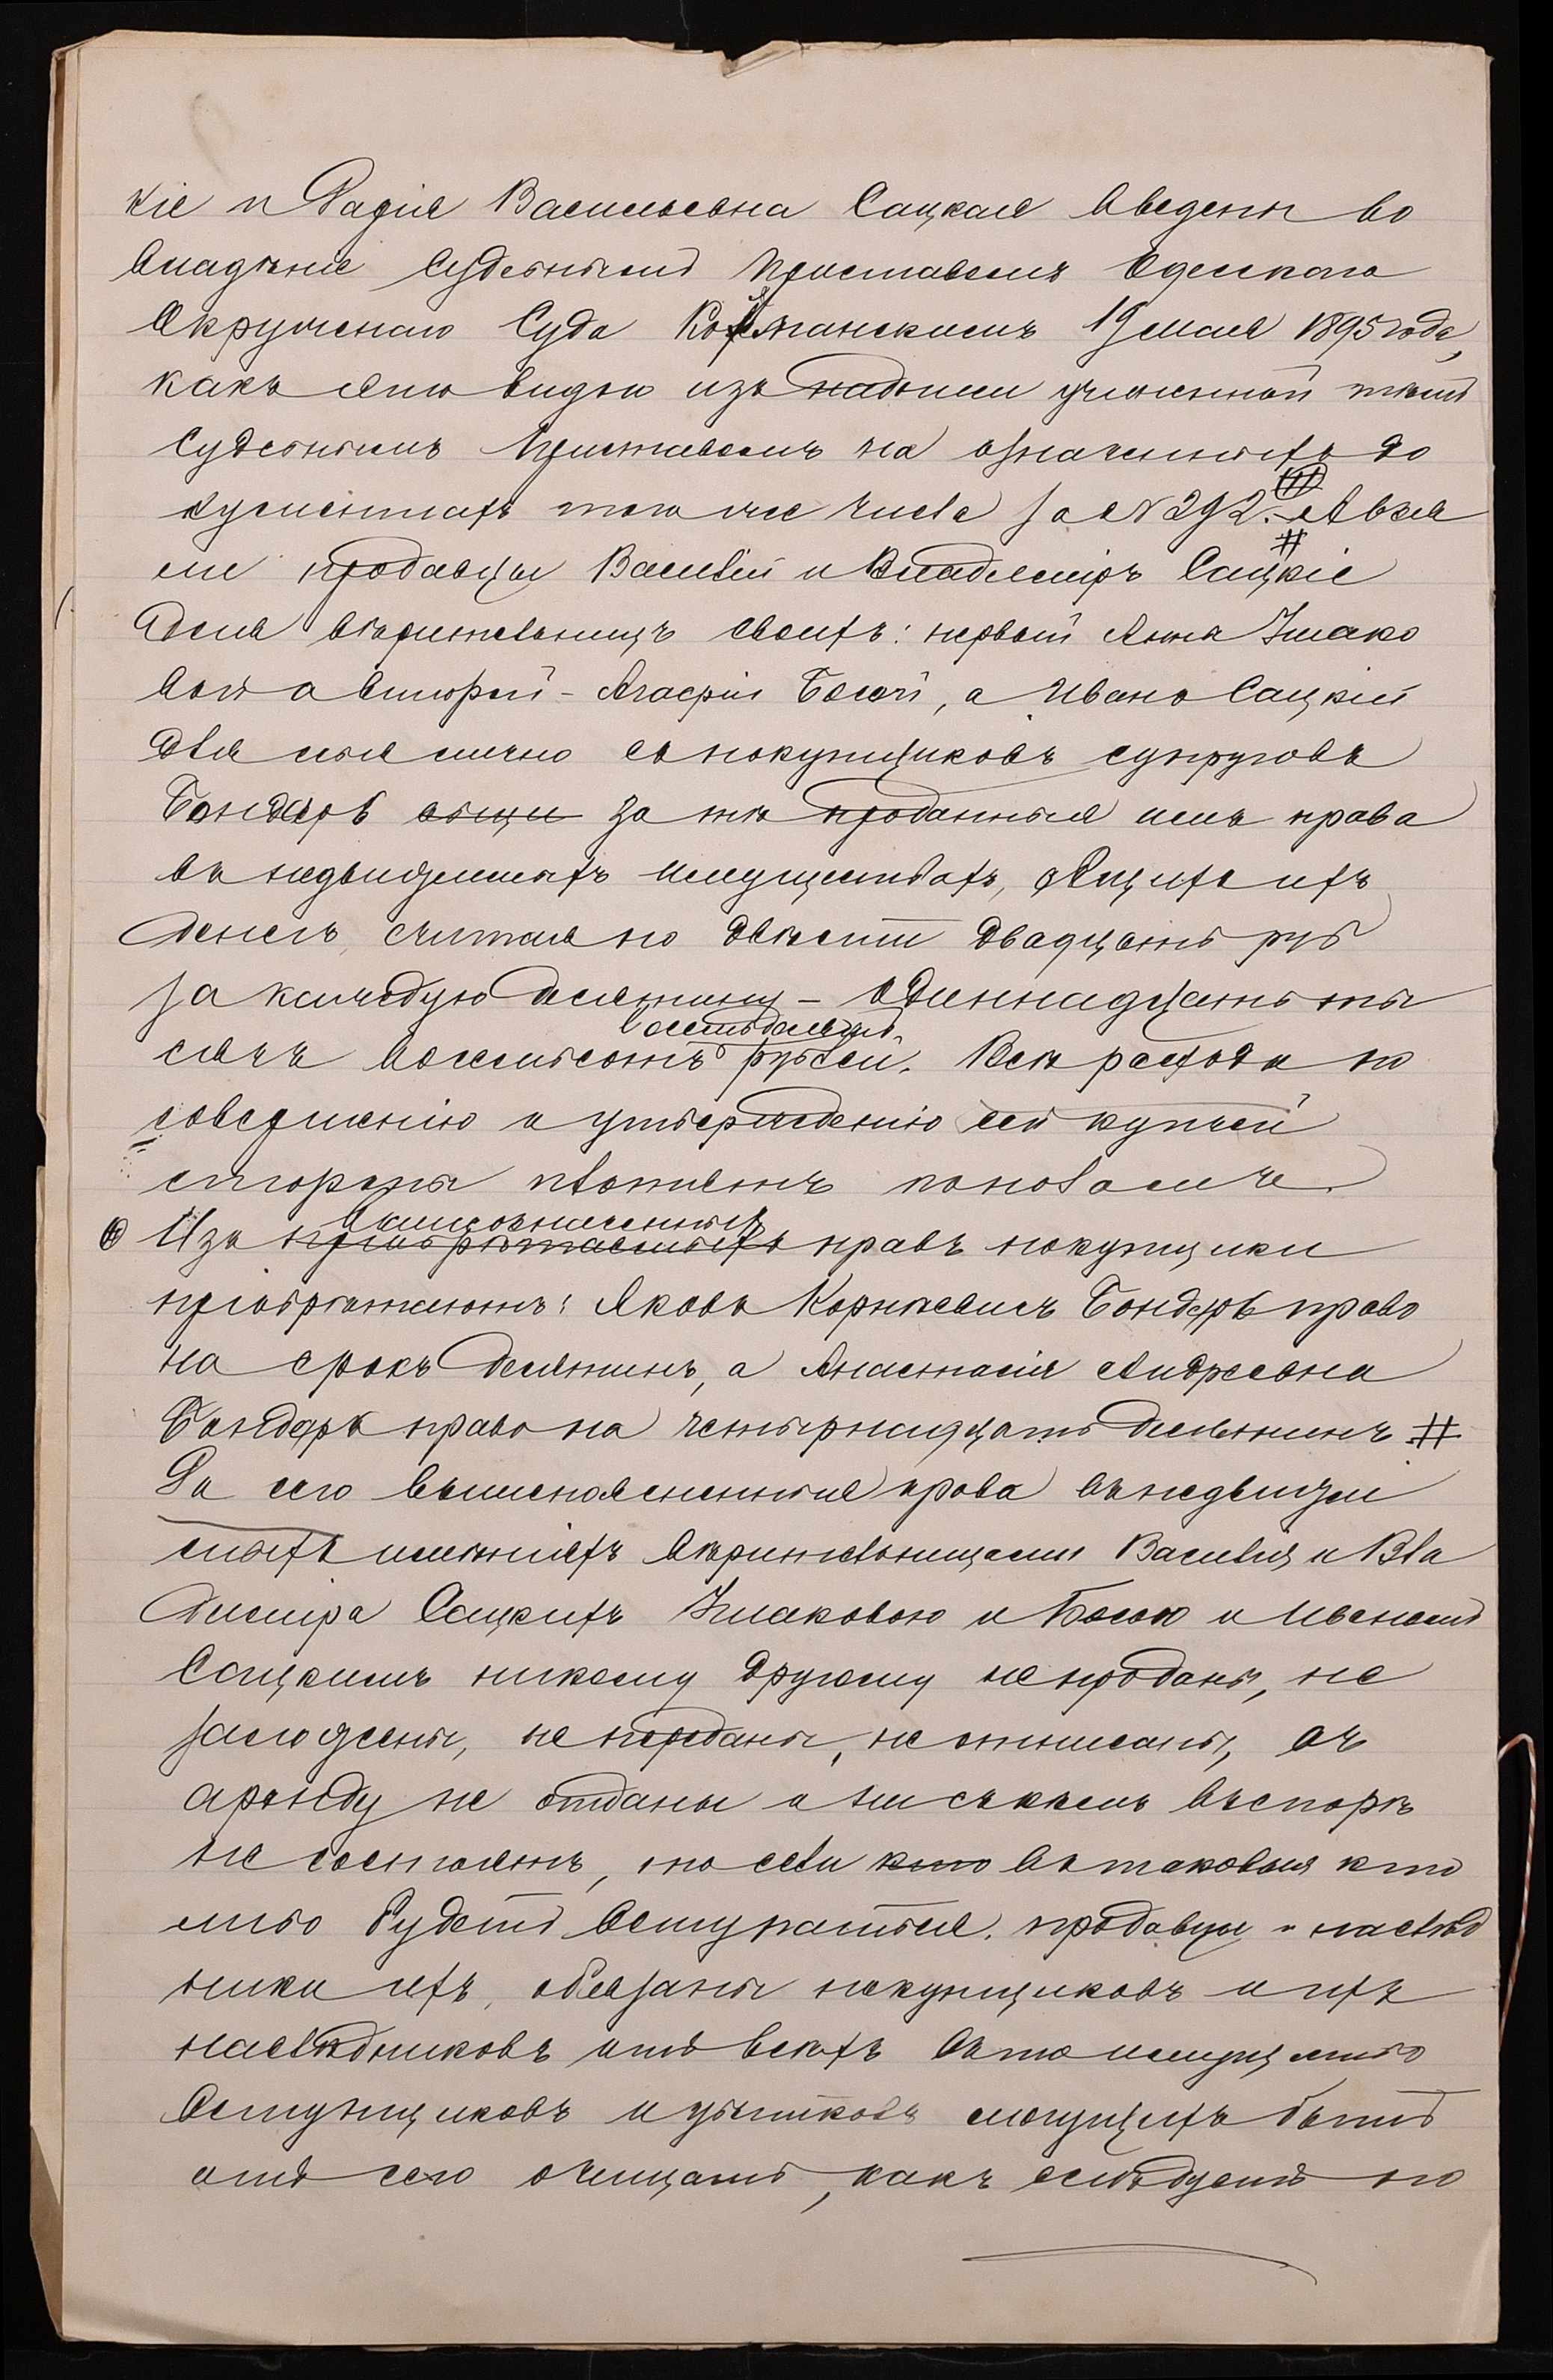 кіе и Марія Васильевна Сацкая введены во
владѣніе Судебнымъ Приставомъ Одесскаго
Окружнаго Суда 19 мая 1895 года,
какъ это видно изъ надписи учиненной тѣмъ
Судебнымъ Приставомъ на означенныхъ до
кументахъ того же числа за № 292. А взя
ли продавцы Василій и Владиміръ Сацкіе
для вѣрительницъ своихъ: первый Анны Ильяко
вой а вторый - Агафіи Босой, а Иванъ Сацкій
для себя лично съ покупщиковъ супруговъ
Бондарь за тѣ проданныя ими права
въ недвижимыхъ имуществахъ, общихъ ихъ
денегъ, считая по двѣсти двадцать руб
за каждую десятину - одиннадцать ты
сячъ восемьсотъ восемьдесятъ рублей. Всѣ расходы по
совершенію и утвержденію сей купчей
стороны платятъ пополамъ.
Изъ вышеозначенныхъ правъ покупщики
пріобрѣтаютъ: Яковъ Корнѣевичъ Бондарь право
на сорокъ десятинъ, а Анастасія Андреевна
Бондарь право на четырнадцать десятинъ #
До сего вышепоясненныя права въ недвижи
мыхъ имѣніяхъ вѣрительницами Василія и Вла
диміра Сацкихъ Ильяковою и Босою и Иваномъ
Сацкимъ никому другому не проданы, не
заложены, не переданы, не отписаны, въ
аренду не отданы и ни съ кѣмъ въ спорѣ
не состоятъ, но если кто въ таковыя кто
либо будетъ вступаться, продавцы и наслѣд
ники ихъ, обязаны покупщиковъ и ихъ
наслѣдниковъ отъ всѣхъ въ то имущество
вступщиковъ и убытковъ могущихъ быть
отъ сего очищать, какъ слѣдуетъ по